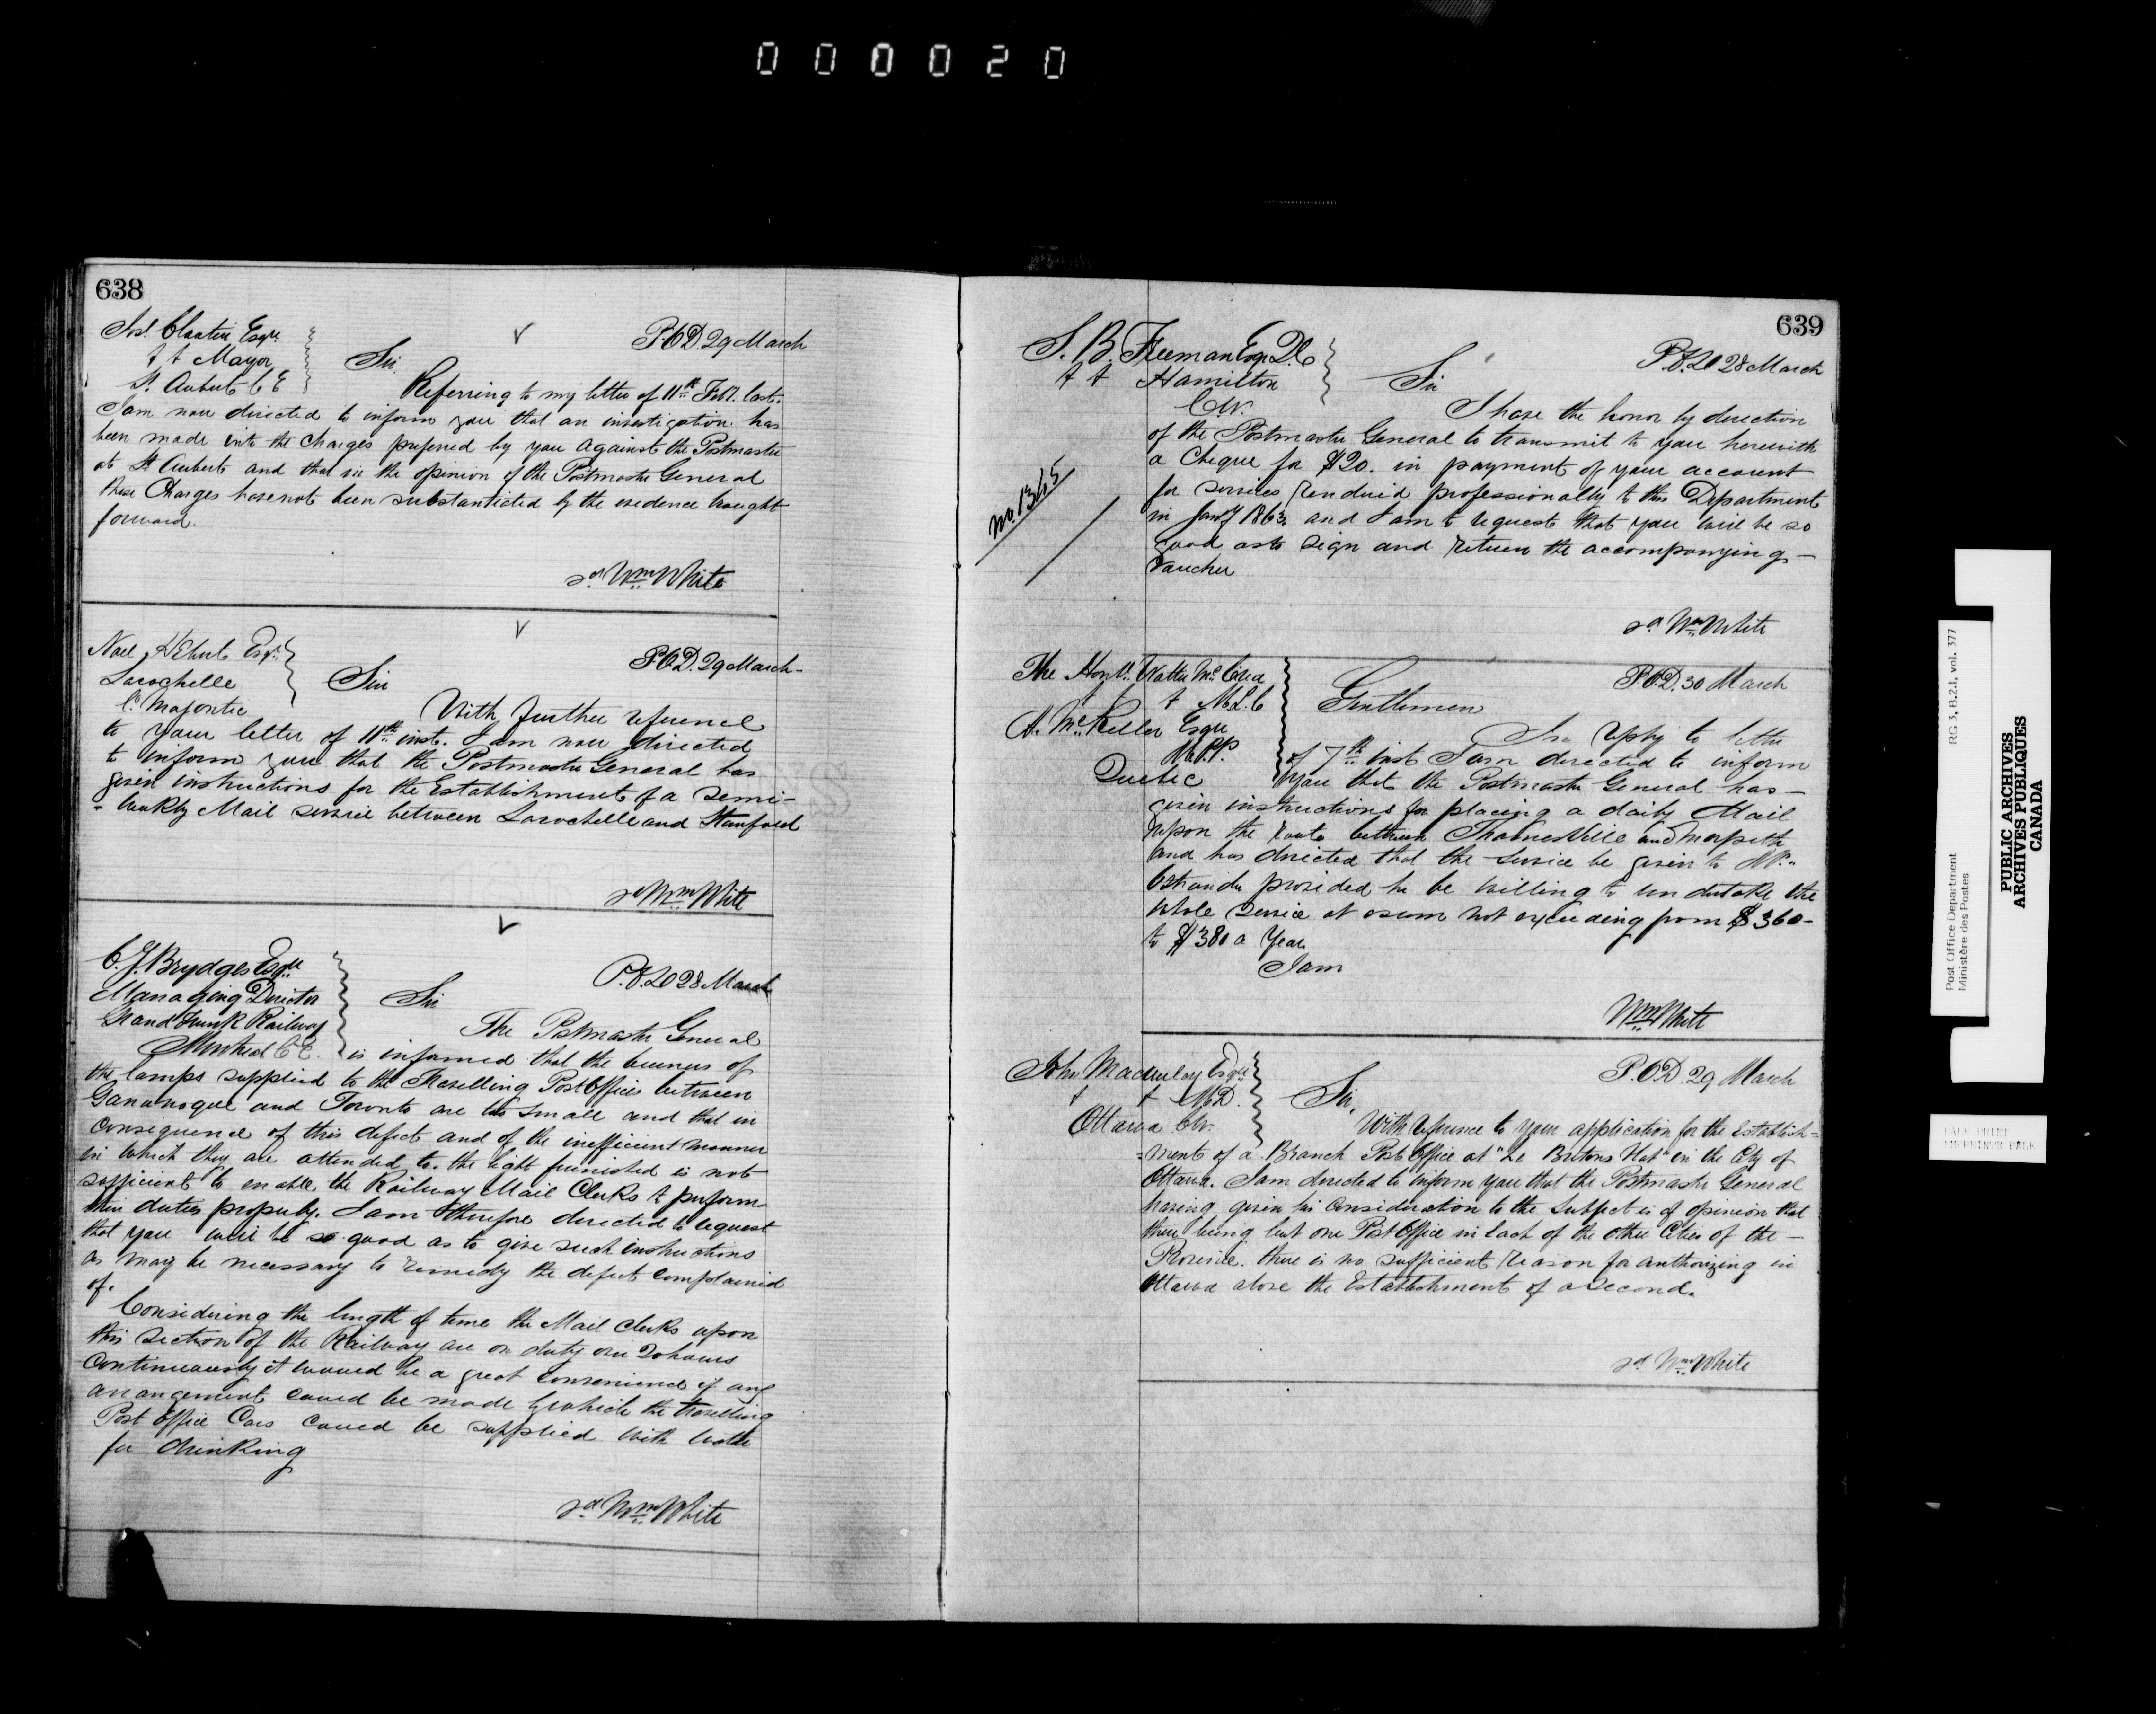 000020
638
Josh Cloutier Esqre
&c &c Mayor
St. Aubert C E
P.O.D. 29 March
Sir.
Referring to my letter of 11th Feby. last.
I am now directed to inform you that an investigation has
been made into the charges preferred by you against the Postmaster
at St Aubert and that in the opinion of the Postmaster General
these Charges have not been substanticted by the evidence brought
forward.
sd Wm White
Noel Hebert Esqr.
Larochelle
Co. Megantic
P.O.D. 29 March
Sir
With further reference
to your letter of 11th inst. I am now directed
to inform you that the Postmaster General has
given instructions for the Establishment of a Semi-
-weekly Mail service between Larochelle and Stanfold
sd Wm White
C. J. Brydges Esqre
Managing Director
Grand Trunk Railway
Montreal C E.
P.O.D 28 March
Sir
The Postmaster General
is informed that the burners of
the lamps supplied to the Travelling Post Offices between
Gananoque and Toronto are too small and that in
consequence of this defect and of the inefficient manner
in which they are attended to. the light furnished is not
sufficient to enable the Railway Mail Clerks to perform
their duties properly. I am therefore directed to request
that you will be so good as to give such instructions
as may be necessary to remedy the defect complained
of.
Considering the length of time the Mail Clerks upon
this section of the Railway are on duty over 20 hours
continuously it would be a great convenience if any
arrangement could be made by which the travelling
Post Office Cars could be supplied with water
for drinking
sd Wm White
639
S. B. Freeman Esqr. Q.C
&c &c Hamilton
C.W.
P.O.D 28 March
Sir
I have the honor by direction
of the Postmaster General to transmit to you herewith
a Cheque for $20. in payment of your account
for services rendered professionally to this Department
in Jany 1863 and I am to request that you will be so
good as to sign and return the accompanying
Voucher
No. 1345
sd Wm White
The Honble. Walter McCrea
&c &c M.L.C
A. McKellar Esqre
M.P.P.
Quebec
P.O.D. 30 March
Gentlemen
In reply to letter
of 7th inst I am directed to inform
you that the Postmaster General has
given instructions for placing a daily Mail
upon the route between Thamesville and Morpeth
and has directed that the service be given to Mr.
provided he be willing to undertake the
whole service at a sum not exceeding from $360
to $380 a Year
I am
Wm White
John Macaulay Esqre
&c &c M.D.
Ottawa CW.
P.O.D. 29 March
Sir,
With reference to your application for the Establish-
-ment of a Branch Post Office at "Le Bretons Flat" in the City of
Ottawa. I am directed to inform you that the Postmaster General
having given his consideration to the subject is of opinion that
there being but one Post Office in each of the other Cities of the
Province. there is no sufficient reason for authorizing in
Ottawa alone the Establishment of a second.
sd Wm White
Post Office Department
Ministère des Postes
RG 3, B.2.1, vol. 377
PUBLIC ARCHIVES
ARCHIVES PUBLIQUES
CANADA